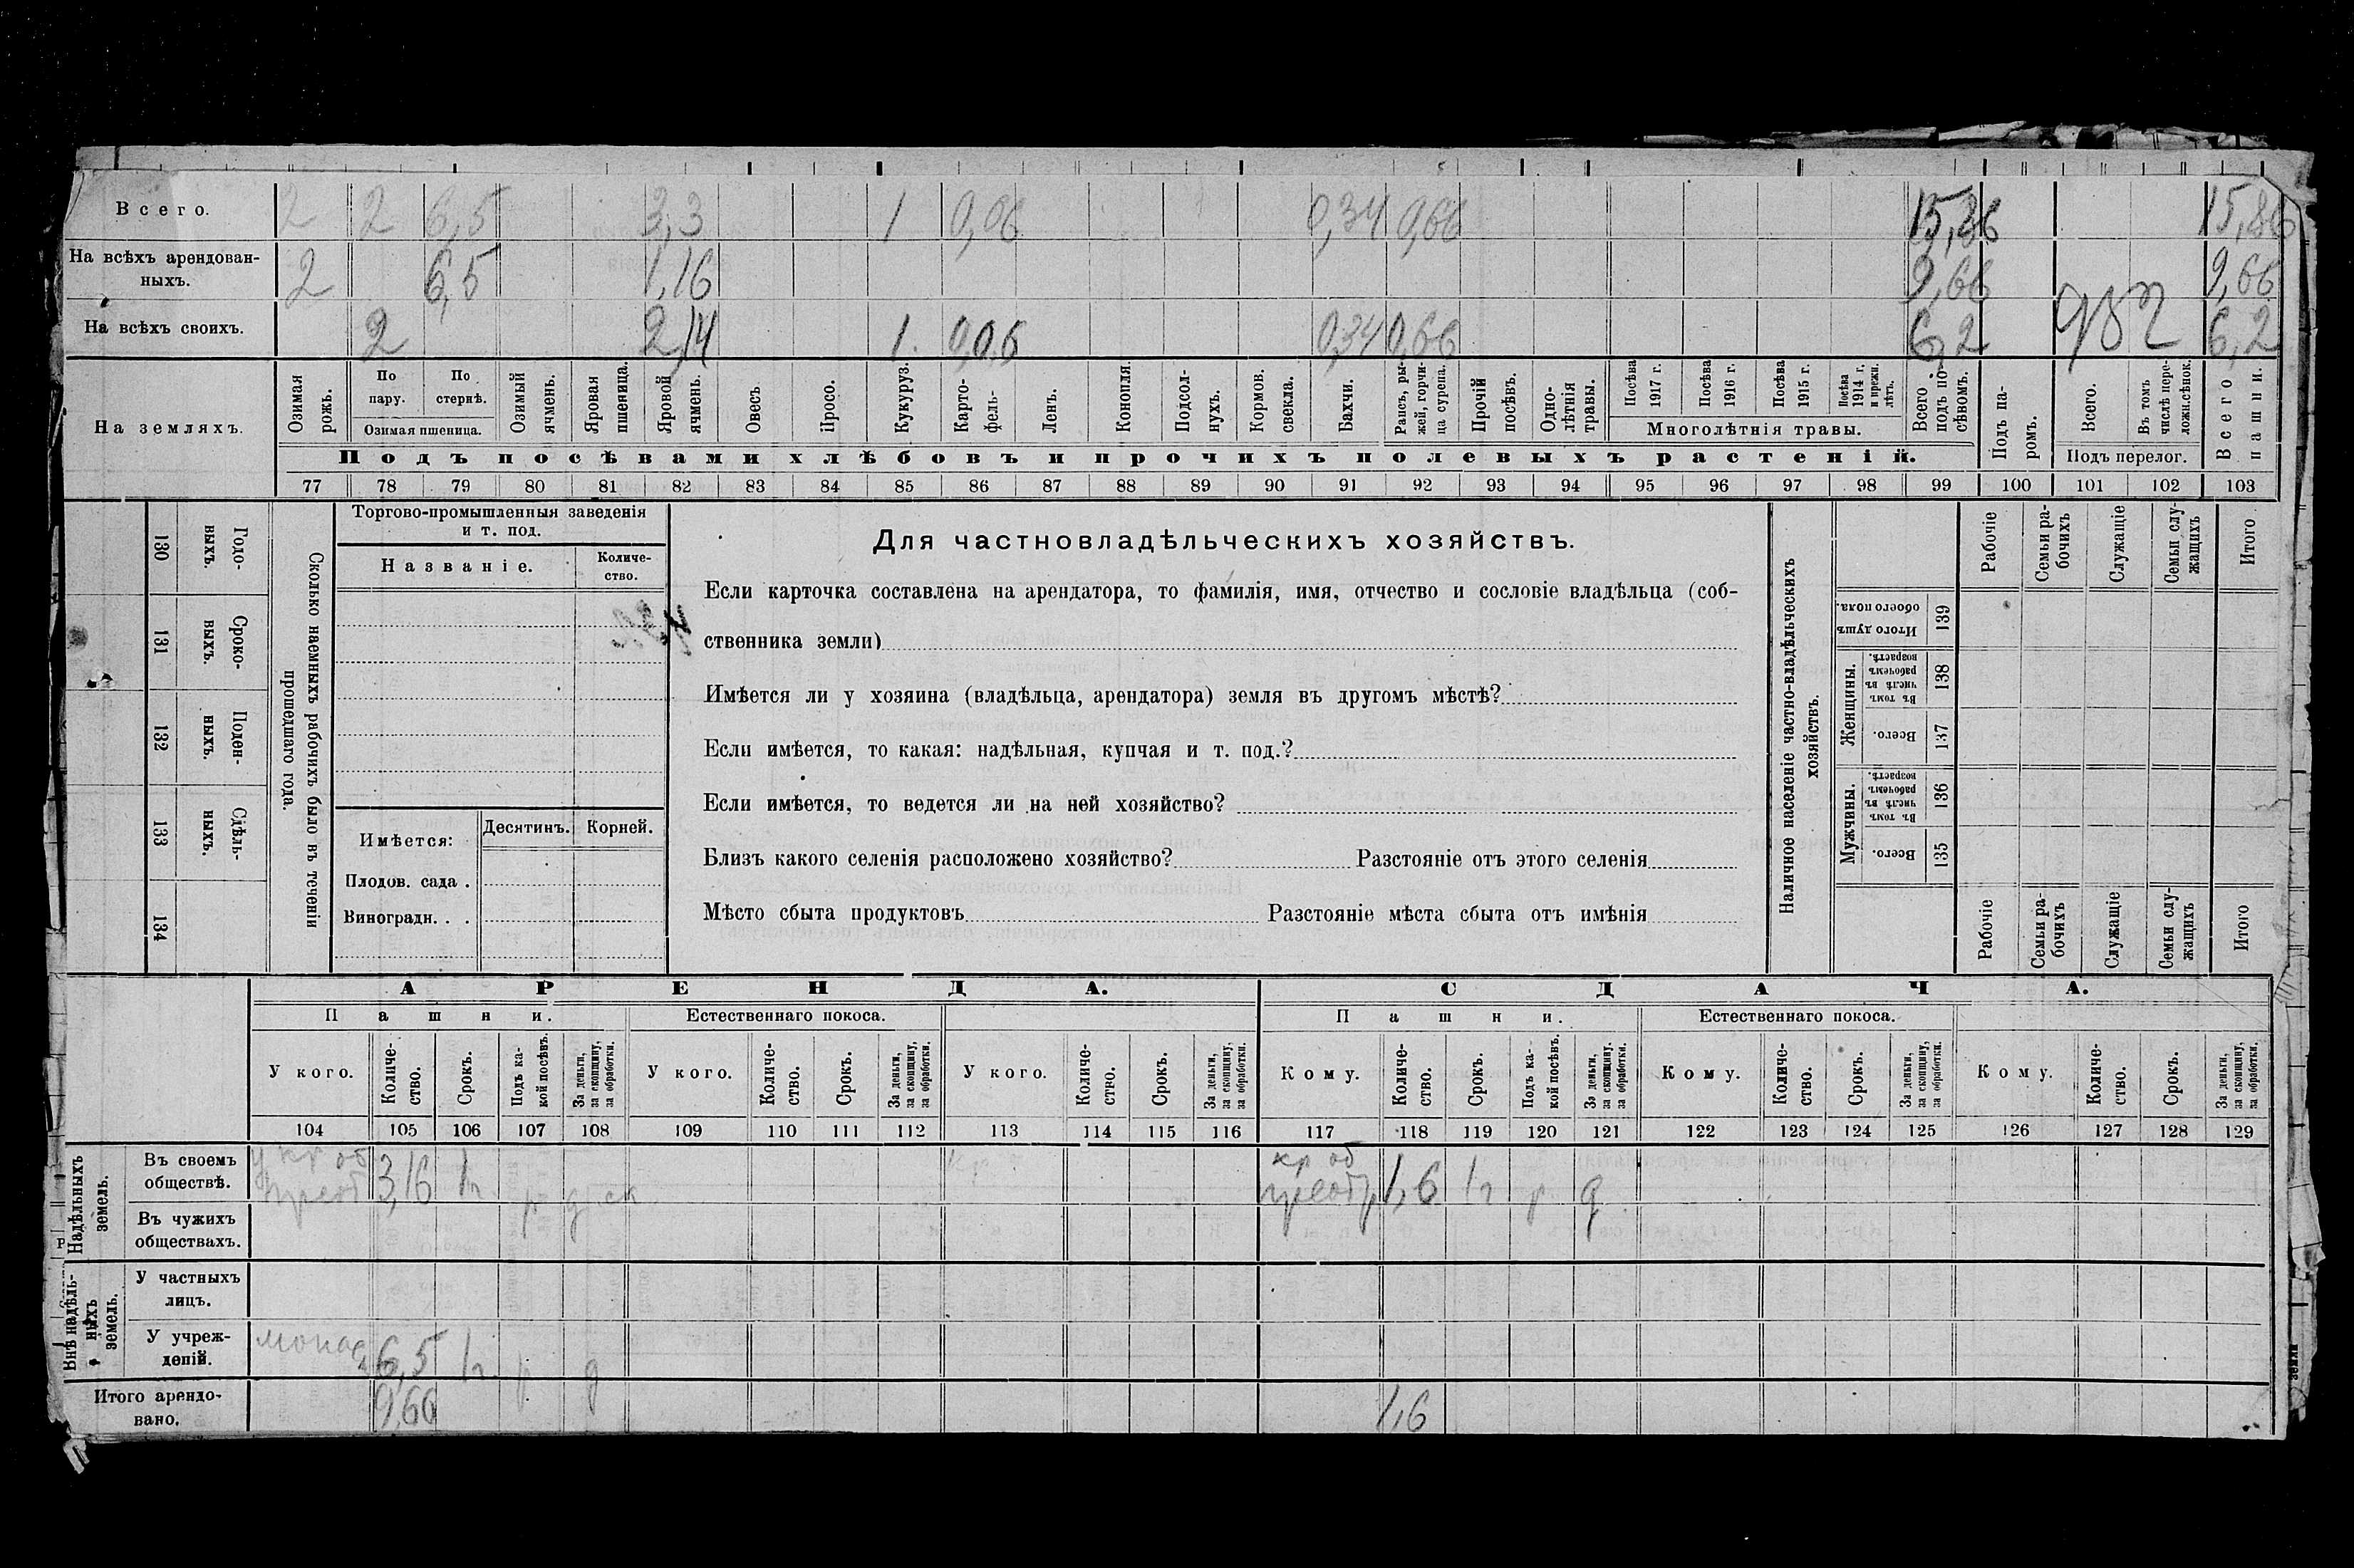 Всего. 2 2 6,5 3,3 1 0,06 0,34 0,66 15,86 15,86
На всѣхъ арендован-
ныхъ. 2 6,5 1,16 9,66 9,66
На всѣхъ своихъ. 2 2,14 1. 0,06 0,34 0,66 6,2 6,2
На земляхъ.
Озимая рожь.
По пару.
По стернѣ.
Озимая пшеница.
Озимый ячмень.
Яровая пшеница.
Яровой ячмень.
Овесъ
Просо.
Кукуруз.
Карто-
фель-
Ленъ.
Конопля.
Подсол-
нухъ.
Кормов. свекла.
Бахчи.
Рапсъ, ры-
жей, горчи-
ца сурепа.
Прочій посѣвъ.
Одно-
лѣтнія травы.
Посѣва 1917 г.
Посѣва 1916 г.
Посѣва 1915 г.
Посѣва 1914 г. и прежн. лѣтъ.
Многолѣтнія травы.
Всего подъ по-
сѣвомъ.
Подъ па-
ромъ.
Всего.
Въ томъ числѣ пере-
ложн.сѣнок.
Подъ перелог.
Всего пашни.
Подъ посѣвами хлѣбовъ и прочихъ полевыхъ растеній.
77 78 79 80 81 82 83 84 85 86 87 88 89 90 91 92 93 94 95 96 97 98 99 100 101 102 103
130 Годо-
ныхъ.
131 Сроко-
выхъ.
132 Поден-
ныхъ.
133 Сдѣль-
ныхъ.
134
Сколько наемныхъ рабочихъ было въ теченіи
прошедшаго года.
Торгово-промышленныя заведенія
и т. под.
Названіе.
Количе-
ство.
Имѣется: Десятинъ. Корней.
Плодов. сада .
Виноградн. . .
Для частновладѣльческихъ хозяйствъ.
Если карточка составлена на арендатора, то фамилія, имя, отчество и сословіе владѣльца (соб-
ственника земли)
Имѣется ли у хозяина (владѣльца, арендатора) земля въ другомъ мѣстѣ?
Если имѣется, то какая: надѣльная, купчая и т. под.?
Если имѣется, то ведется ли на ней хозяйство?
Близъ какого селенія расположено хозяйство? Разстояніе отъ этого селенія
Мѣсто сбыта продуктовъ Разстояніе мѣста сбыта отъ имѣнія
Наличное населеніе частно-владѣльческихъ
хозяйствъ.
Рабочіе
Семьи ра-
бочихъ
Служащіе
Семьи слу-
жащихъ
Итого
Итого душъ обоего пола. 139
Женщины.
Въ томъ числѣ въ рабочемъ возрастѣ. 138
Всего. 137
Мужчины.
Въ томъ числѣ въ рабочемъ возрастѣ. 136
Всего. 135
Рабочіе
Семьи ра-
бочихъ
Служащіе
Семьи слу-
жащихъ
Итого
АРЕНДА. СДАЧА.
Пашни. Естественнаго покоса. Пашни. Естественнаго покоса.
У кого.
Количе-
ство.
Срокъ.
Подъ ка-
кой посѣвъ.
За деньги,
за скопщину,
за обработки.
У кого.
Количе-
ство.
Срокъ.
За деньги,
за скопщину,
за обработки.
У кого.
Количе-
ство.
Срокъ.
За деньги,
за скопщину,
за обработки.
Кому.
Количе-
ство.
Срокъ.
Подъ ка-
кой посѣвъ.
За деньги,
за скопщину.
за обработки.
Кому.
Количе-
ство.
Срокъ.
За деньги,
за скопщину,
за обработки.
Кому.
Количе-
ство.
Срокъ.
За деньги,
за скопщину,
за обработки.
104 105 106 107 108 109 110 111 112 113 114 115 116 117 118 119 120 121 122 123 124 125 126 127 128 129
Надѣльныхъ
земель.
Въ своемъ
обществѣ. у кр об 3,16 1г р д ск кр об 1,6 1г р д
Въ чужихъ
обществахъ.
Внѣ надѣль-
ныхъ
земель.
У частныхъ
лицъ.
У учреж-
деній. 6,5 1г р д
Итого арендо-
вано. 9,66 1,6